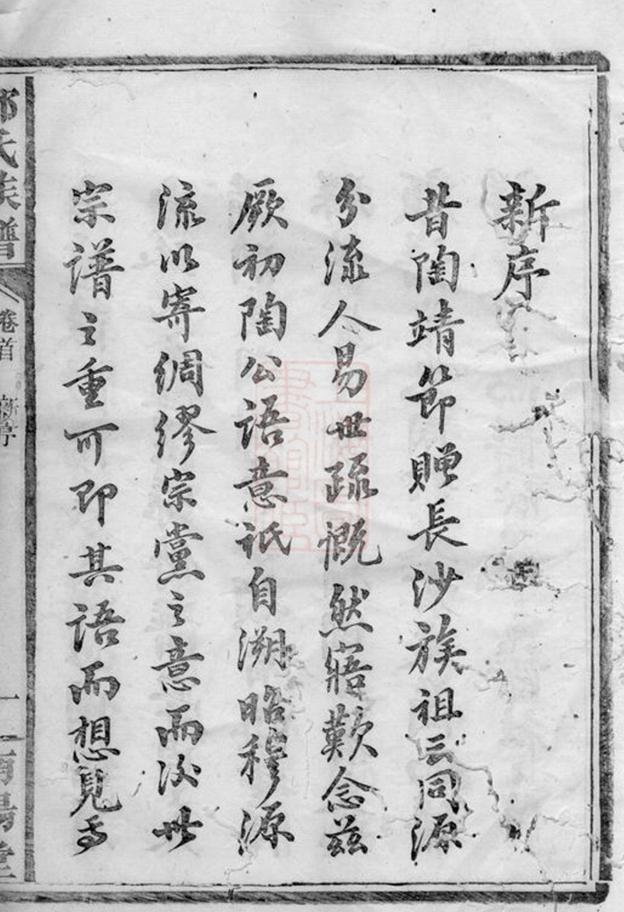 新序
昔陶靖節贈長沙族祖云同源
分流人易世疏慨然寤歎念茲
厥初陶公語意祇自溯昭穆源
流以寄綢繆宗黨之意而後世
宗譜之重可即其語而想見焉
氏族譜
卷首
新序
一
南陽堂